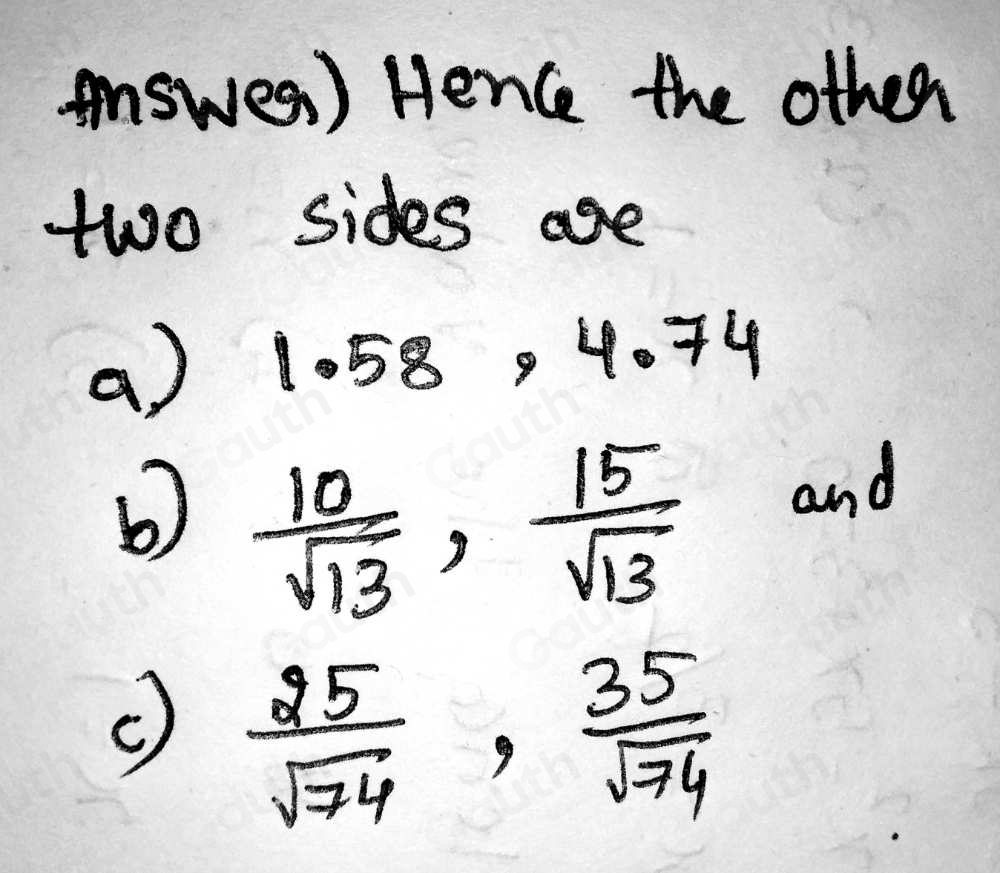 Answer) Hence the other
two sides are
a) 1.58 , 4.74
b) 10/√13 , 15/√13 and
c) 25/√74 , 35/√74 .